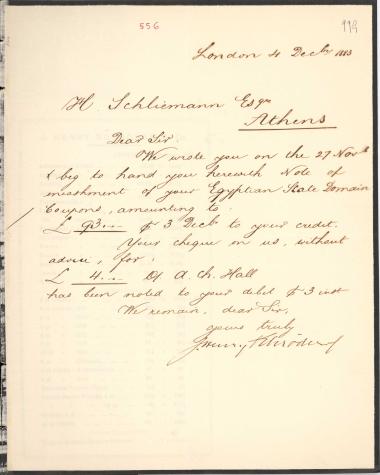 556
London 4 Decbr 1883
H Schliemann Esqre
Athens
Dear Sir,
We wrote you on the 27 Novbr
& beg to hand you herewith Note of
encashment of your Egyptian State Domain
Coupons, amounting to:
£ 93.-.- p 3 Decbr to your credit.
Your cheque on us, without
advice, for:
£ 4.-.- O/ A. Ch. Hall
has been noted to your debit p 3 inst
We remain, dear Sir,
yours truly
J Henry Schröder